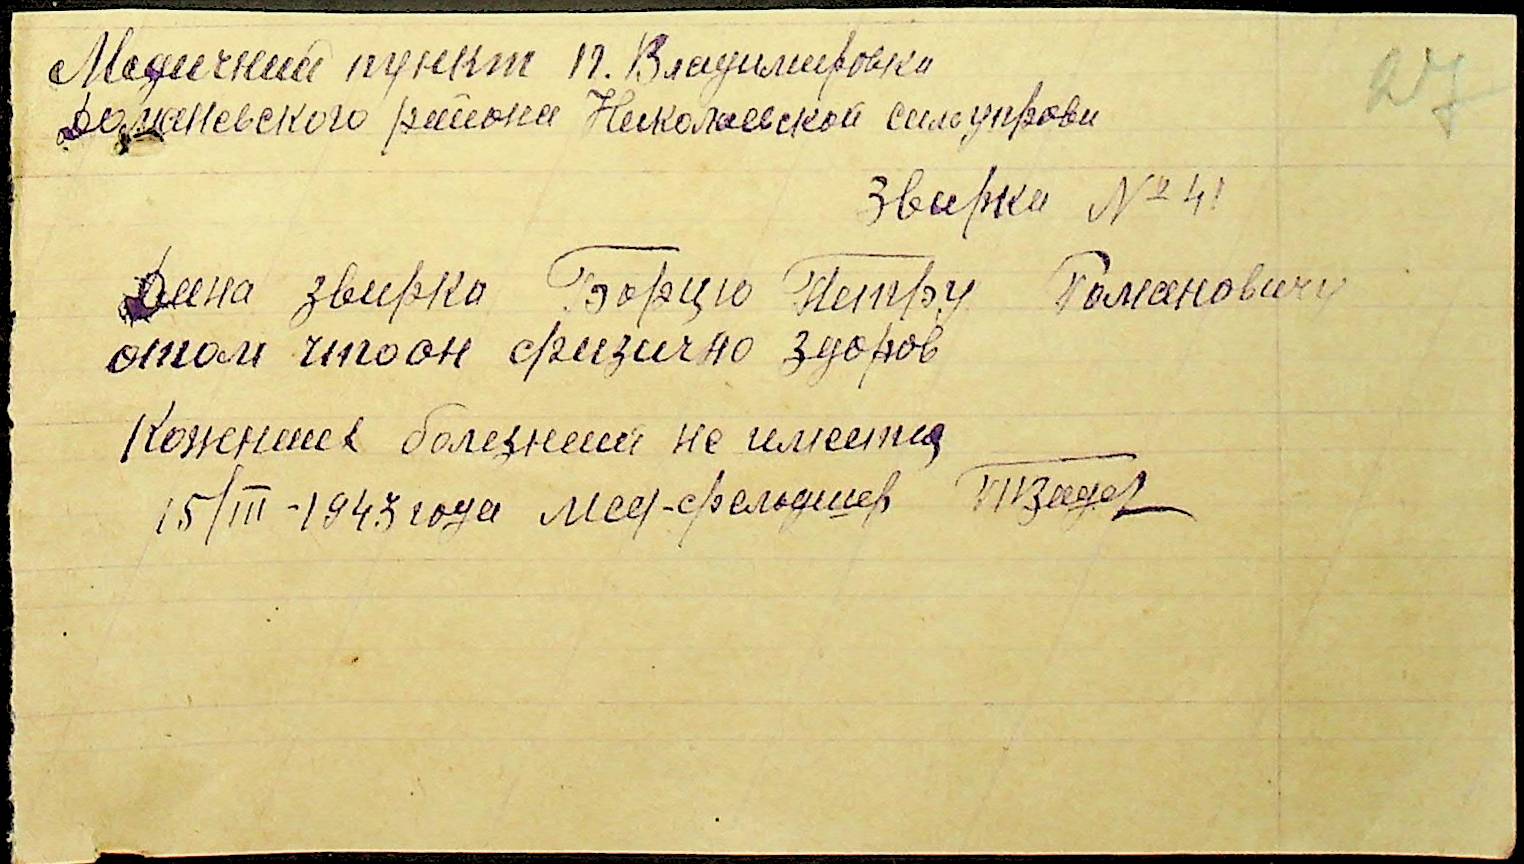 Медичний пункт п. Владимировка
Доманевского района Николаевской сельуправи
27
Звирка № 41
Дана звирка Борцю Петру Романовичу
отом что он физично здоров
Кожених болезней не имеитця
15/III-1943 года Мед-фельдшер